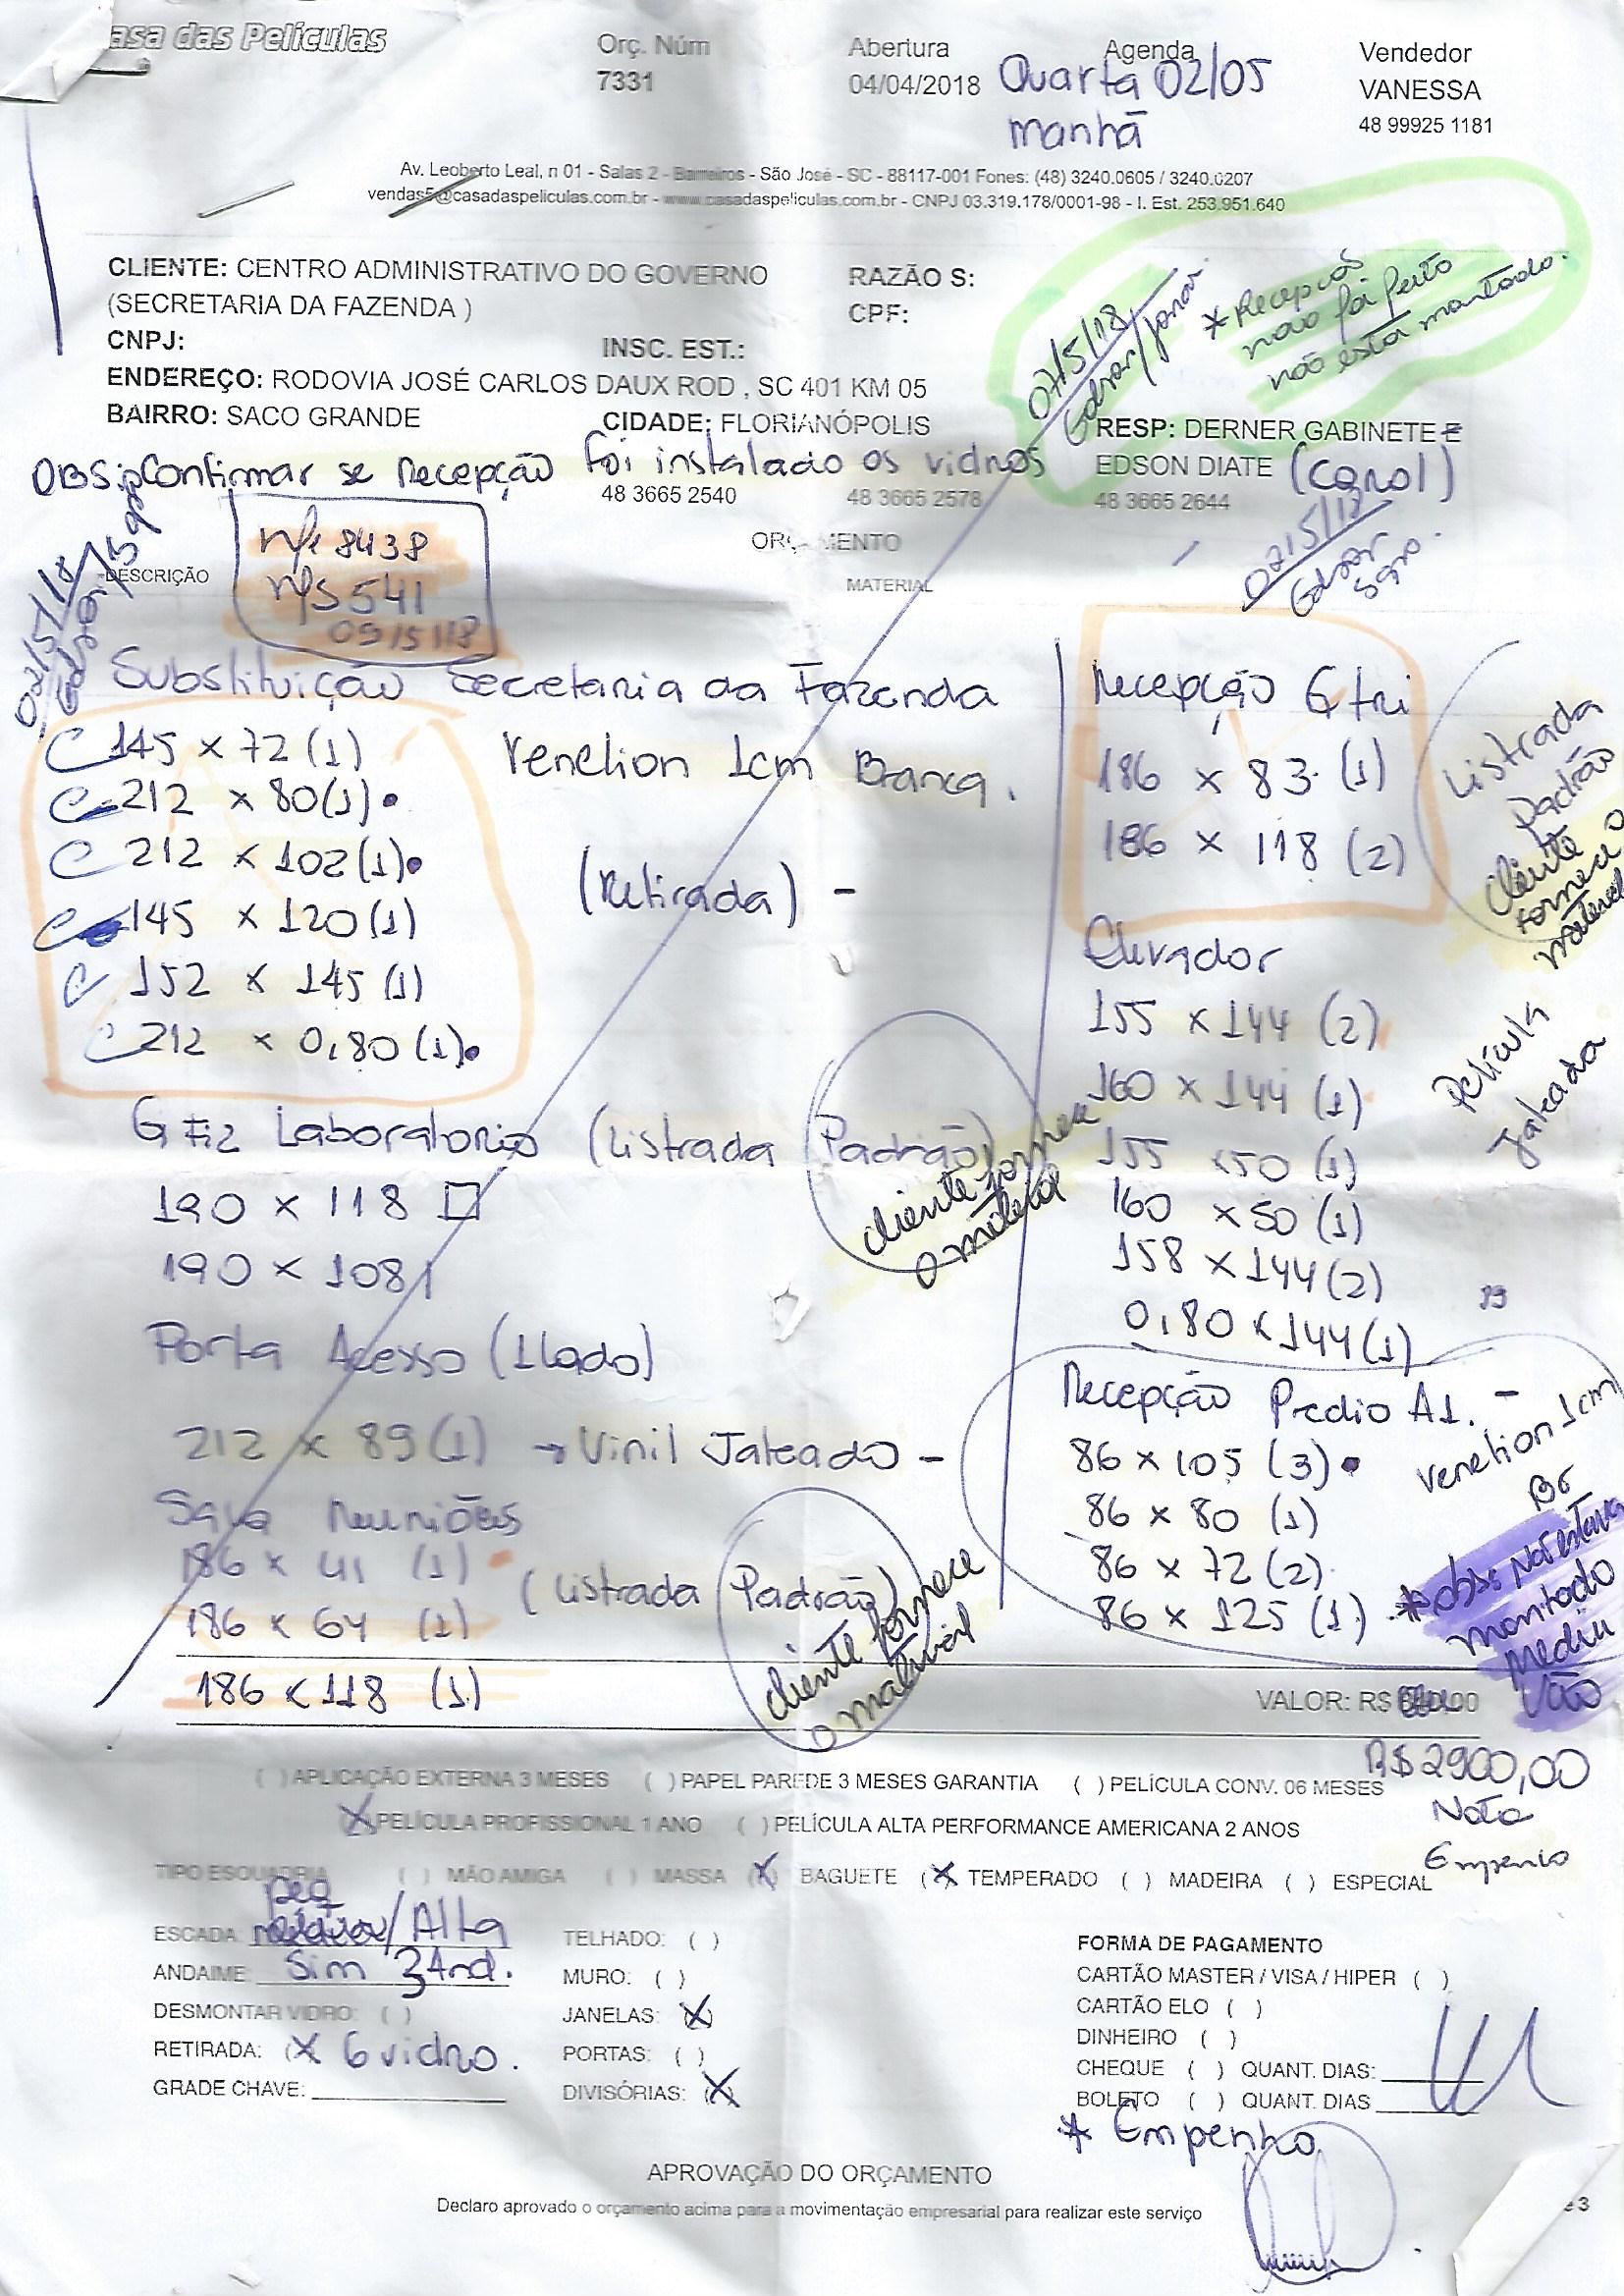 asa das Películas
Orç. Núm
7331
Abertura
04/04/2018
Agenda
Quarta 02/05
manhã
Vendedor
VANESSA
48 99925 1181
Av. Leoberto Leal, n 01 - Salas 2 - Barreiros - São José - SC - 88117-001 Fones: (48) 3240.0605 / 3240.0207
vendas5@casadaspeliculas.com.br - www.casadaspeliculas.com.br - CNPJ 03.319.178/0001-98 - I. Est. 253.951.640
CLIENTE: CENTRO ADMINISTRATIVO DO GOVERNO
(SECRETARIA DA FAZENDA )
RAZÃO S:
CPF:
CNPJ:
INSC. EST.:
ENDEREÇO: RODOVIA JOSÉ CARLOS DAUX ROD , SC 401 KM 05
BAIRRO: SACO GRANDE
CIDADE: FLORIANÓPOLIS
RESP: DERNER GABINETE E
EDSON DIATE (Carol)
07/5/18
* Recepção
não foi feito
não está montado.
OBS: Confirmar se Recepção foi instalado os vidros
48 3665 2540
48 3665 2578
48 3665 2644
02/5/18
ORÇAMENTO
DESCRIÇÃO
MATERIAL
nfe 8438
nfs 541
09/5/18
02/5/18
Substituição Secretaria da Fazenda
145 x 72 (1)
212 x 80 (1)
212 x 102 (1)
145 x 120 (1)
152 x 145 (1)
212 x 0,80 (1)
Venetion 1cm Branca.
(Retirada) -
G Laboratorio (Listrada Padrão)
cliente fornece
o material
190 x 118
190 x 108 1
Porta Acesso (1 lado)
212 x 89 (1) → Vinil Jateado -
Sala Reuniões
186 x 41 (1)
186 x 64 (1)
186 x 118 (1)
(Listrada Padrão)
cliente fornece
o material
Recepção Gtri
186 x 83 (1)
186 x 118 (2)
Listrada
Padrão
cliente
fornece o
material
Elevador
155 x 144 (2)
160 x 144 (1)
155 x 50 (1)
160 x 50 (1)
158 x 144 (2)
0,80 x 144 (1)
Película
Jateada
Recepção Predio A1. -
86 x 105 (3)
86 x 80 (1)
86 x 72 (2)
86 x 125 (1)
Venetion 1cm
Br
* obs: Não estava
montado
mediu
vão
VALOR: R$
R$ 2900,00
Nota
Empenho
( ) APLICAÇÃO EXTERNA 3 MESES ( ) PAPEL PAREDE 3 MESES GARANTIA ( ) PELÍCULA CONV. 06 MESES
(X) PELÍCULA PROFISSIONAL 1 ANO ( ) PELÍCULA ALTA PERFORMANCE AMERICANA 2 ANOS
TIPO ESQUADRIA ( ) MÃO AMIGA ( ) MASSA (X) BAGUETE (X) TEMPERADO ( ) MADEIRA ( ) ESPECIAL
ESCADA: peq / Alta
ANDAIME: Sim 3 And.
DESMONTAR VIDRO: ( )
RETIRADA: (X 6 vidro.
GRADE CHAVE:
TELHADO: ( )
MURO: ( )
JANELAS: (X)
PORTAS: ( )
DIVISÓRIAS: (X)
FORMA DE PAGAMENTO
CARTÃO MASTER / VISA / HIPER ( )
CARTÃO ELO ( )
DINHEIRO ( )
CHEQUE ( ) QUANT. DIAS:
BOLETO ( ) QUANT. DIAS
* Empenho
APROVAÇÃO DO ORÇAMENTO
Declaro aprovado o orçamento acima para a movimentação empresarial para realizar este serviço